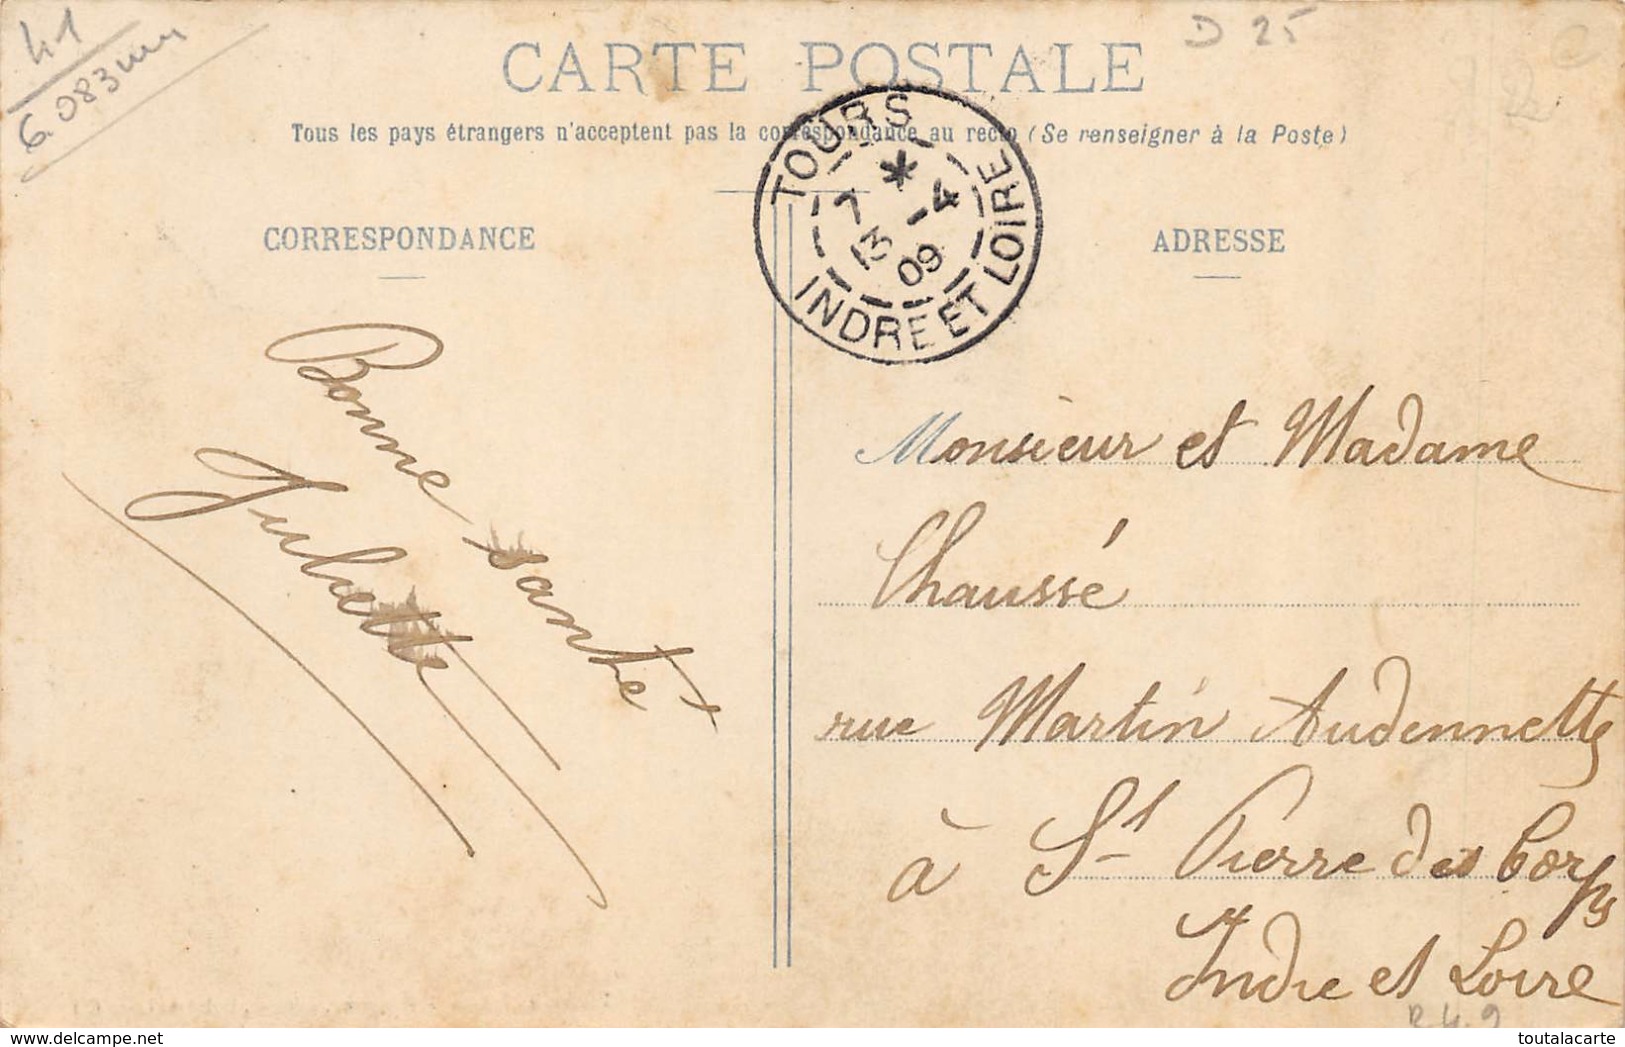 41
D 25
CARTE POSTALE
Tous les pays étrangers n'acceptent pas la correspondance au recto (Se renseigner à la Poste)
TOURS
7 * 13 -4 09
INDRE ET LOIRE
CORRESPONDANCE
ADRESSE
Bonne santé
Juliette
Monsieur et Madame
Chaussé
rue Martin Audennette
à St Pierre des Corps
Indre et Loire
toutalacarte